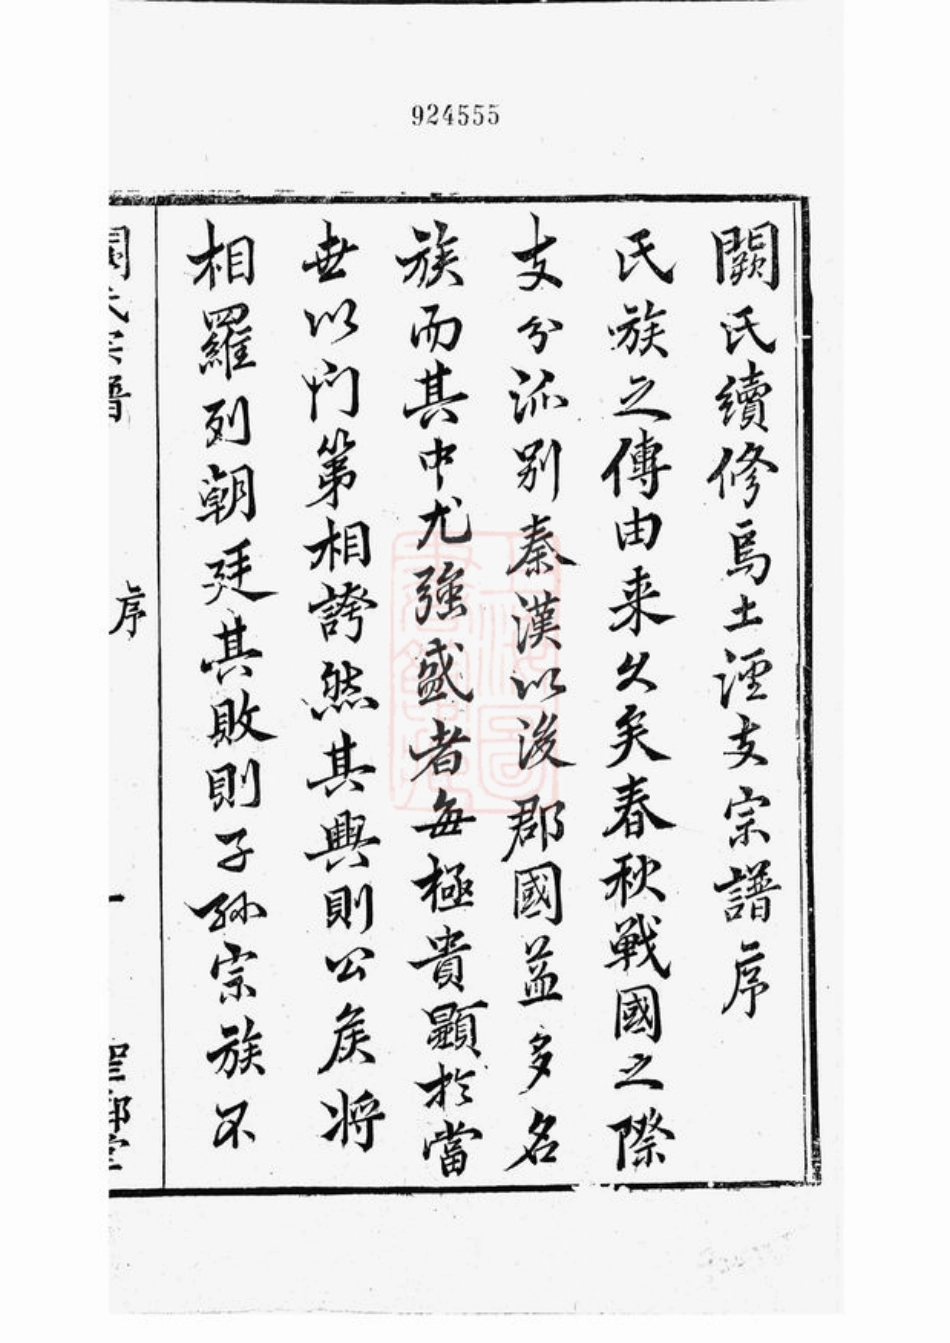 924555
闕氏續修烏土涇支宗譜序
氏族之傳由来久矣春秋戰國之際
支分派别秦漢以後郡國益多名
族而其中尤強盛者每極貴顯於當
世以門第相誇然其興則公侯将
相羅列朝廷其敗則子孫宗族不
闕氏宗譜
序
一